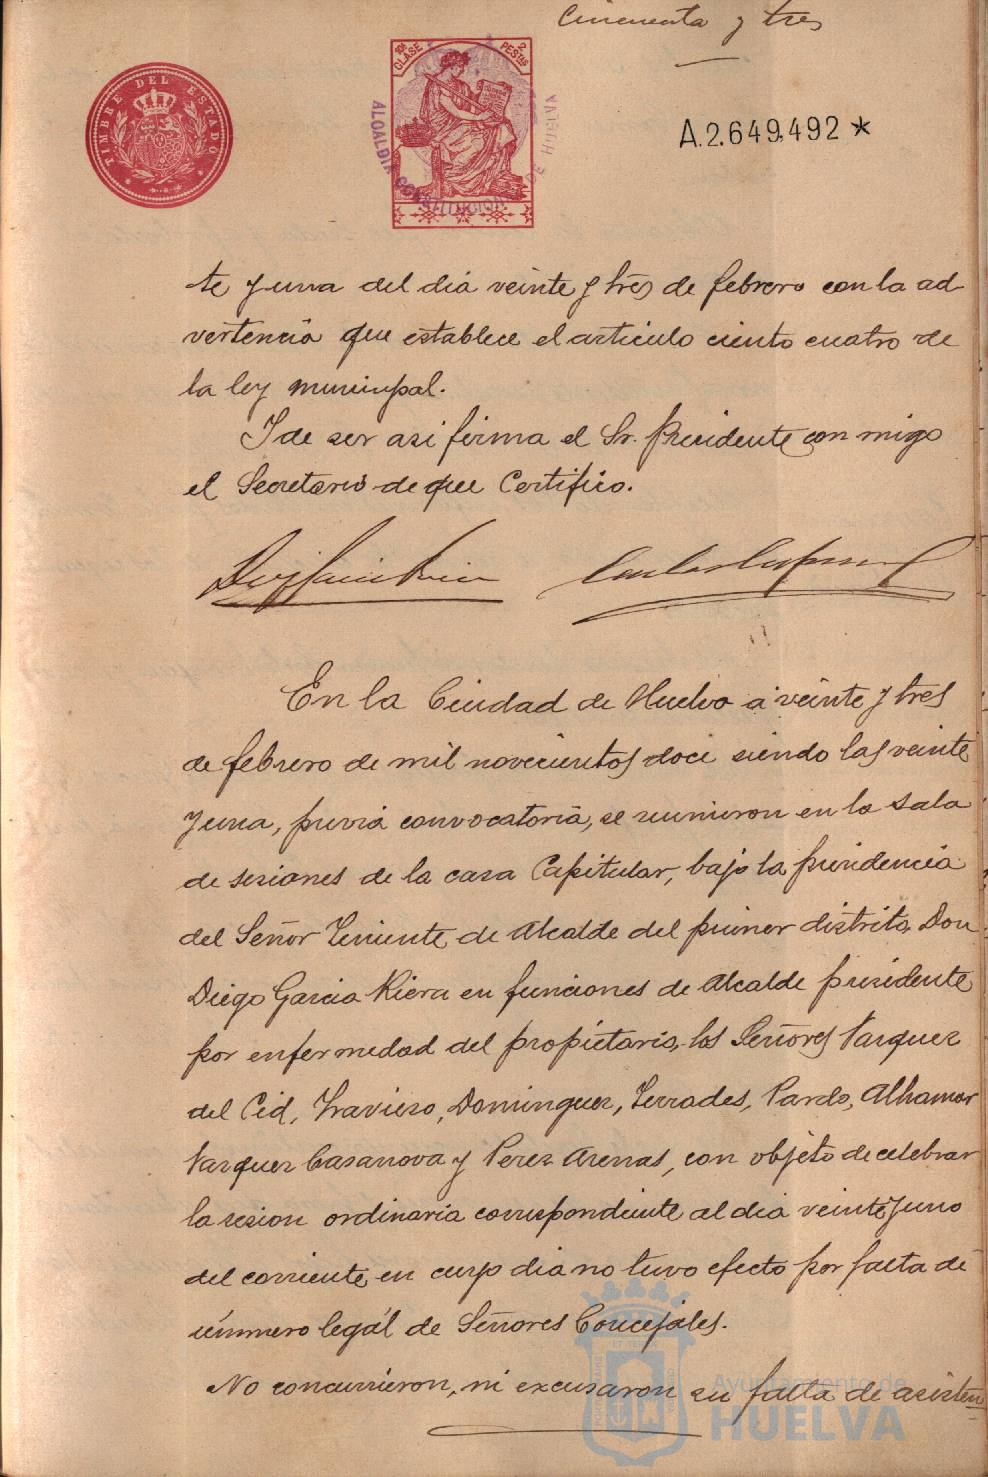 Cincuenta y tres
TIMBRE DEL ESTADO
10ª CLASE
2 PESTAS
ALCALDIA CONSTITUCIONAL DE HUELVA
A.2.649.492 *
te y una del dia veinte y tres de febrero con la ad-
vertencia que establece el articulo ciento cuatro de
la ley municipal.
Y de ser asi firma el Sr. Presidente con migo
el Secretario de que Certifico.
En la Ciudad de Huelva a veinte y tres
de febrero de mil novecientos doce siendo las veinte
y una, previa convocatoria, se reunieron en la sala
de sesiones de la casa Capitular, bajo la presidencia
del Señor Teniente de Alcalde del primer distrito, Don
Diego Garcia Riera en funciones de Alcalde presidente
por enfermedad del propietario, los Señores Vazquez
del Cid, Travieso, Dominguez, Terrades, Pardo, Alhamar
Vazquez Casanova y Perez Arenas, con objeto de celebrar
la sesion ordinaria correspondiente al dia veinte y uno
del corriente en cuyo dia no tuvo efecto por falta de
número legal de Señores Concejales.
No concurrieron, ni excusaron su falta de asisten
Ayuntamiento de
HUELVA